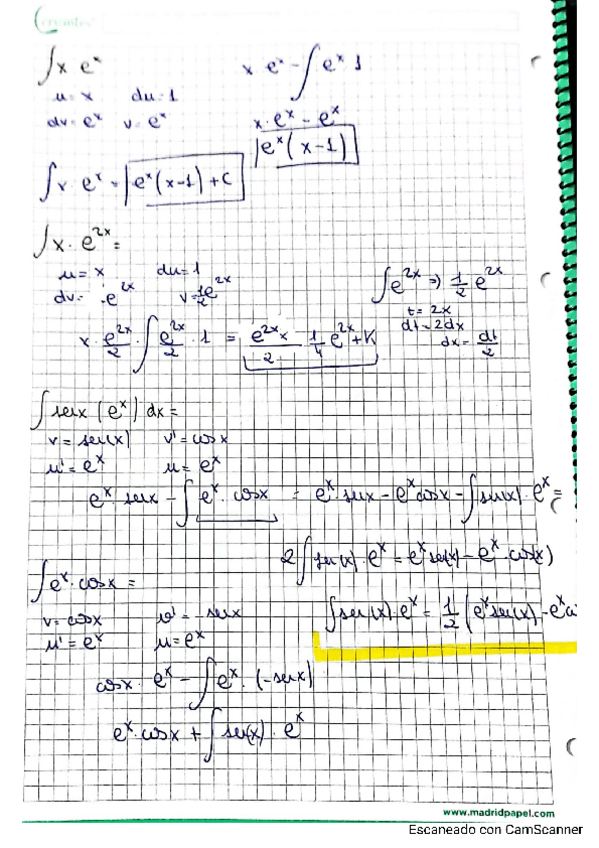 ∫x eˣ
x · eˣ - ∫eˣ 1
u = x du = 1
dv = eˣ v = eˣ
x · eˣ - eˣ
eˣ(x-1)
∫x · eˣ = eˣ(x-1) + C
∫x · e²ˣ =
u = x du = 1
dv = e²ˣ v = 1/2 e²ˣ
∫e²ˣ ⇒ 1/2 e²ˣ
t = 2x
dt = 2dx
dx = dt/2
x · e²ˣ/2 · ∫ e²ˣ/2 · 1 = e²ˣx/2 · 1/4 e²ˣ + K
∫senx (eˣ) dx =
v = sen(x) v' = cosx
u' = eˣ u = eˣ
eˣ · senx - ∫eˣ · cosx = eˣ · senx - eˣcosx - ∫sen(x) · eˣ =
2∫sen(x) · eˣ = eˣsen(x) - eˣ · cos(x)
∫eˣ · cosx =
v = cosx v' = -senx
u' = eˣ u = eˣ
∫sen(x) · eˣ = 1/2 (eˣsen(x) - eˣco
cosx · eˣ - ∫eˣ · (-senx)
eˣ · cosx + ∫sen(x) · eˣ
www.madridpapel.com
Escaneado con CamScanner